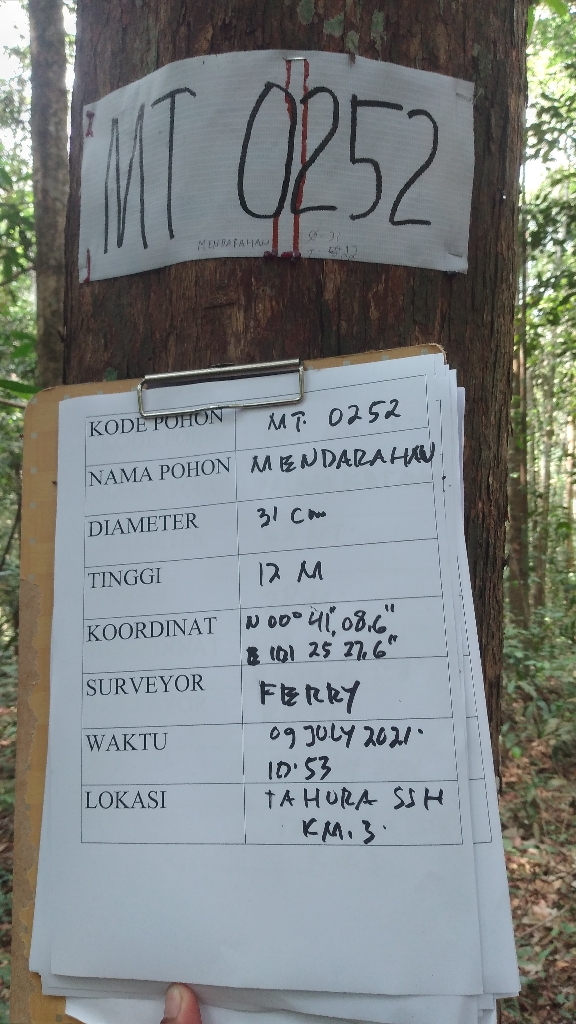 MT 0252
MENDARAHAN
KODE POHON MT. 0252
NAMA POHON MENDARAHAN
DIAMETER 31 cm
TINGGI 12 M
KOORDINAT N 00° 41", 08,6"
E 101 25 27,6"
SURVEYOR FERRY
WAKTU 09 JULY 2021.
10.53
LOKASI TAHURA SSH
KM.3.